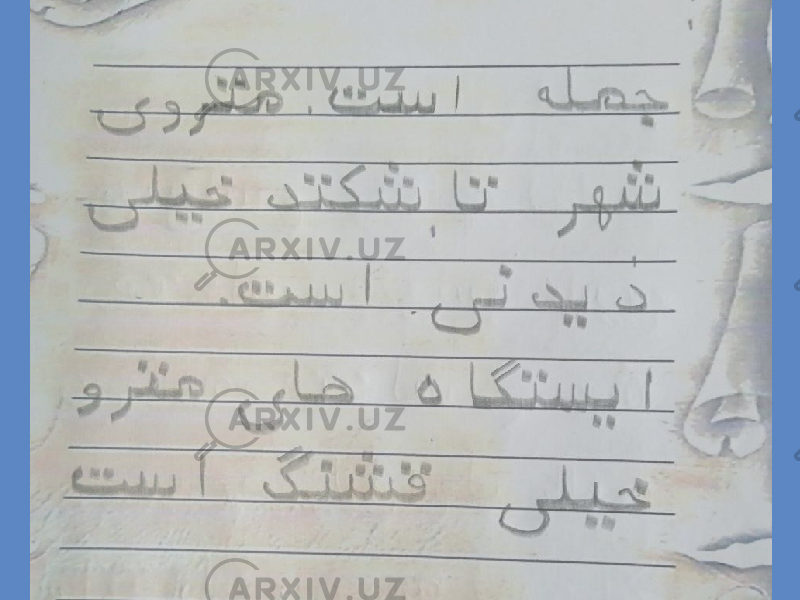 جمله است. متروی
شهر تاشکند خیلی
دیدنی است.
ایستگاه های مترو
خیلی قشنگ است
ARXIV.UZ
ARXIV.UZ
ARXIV.UZ
ARXIV.UZ